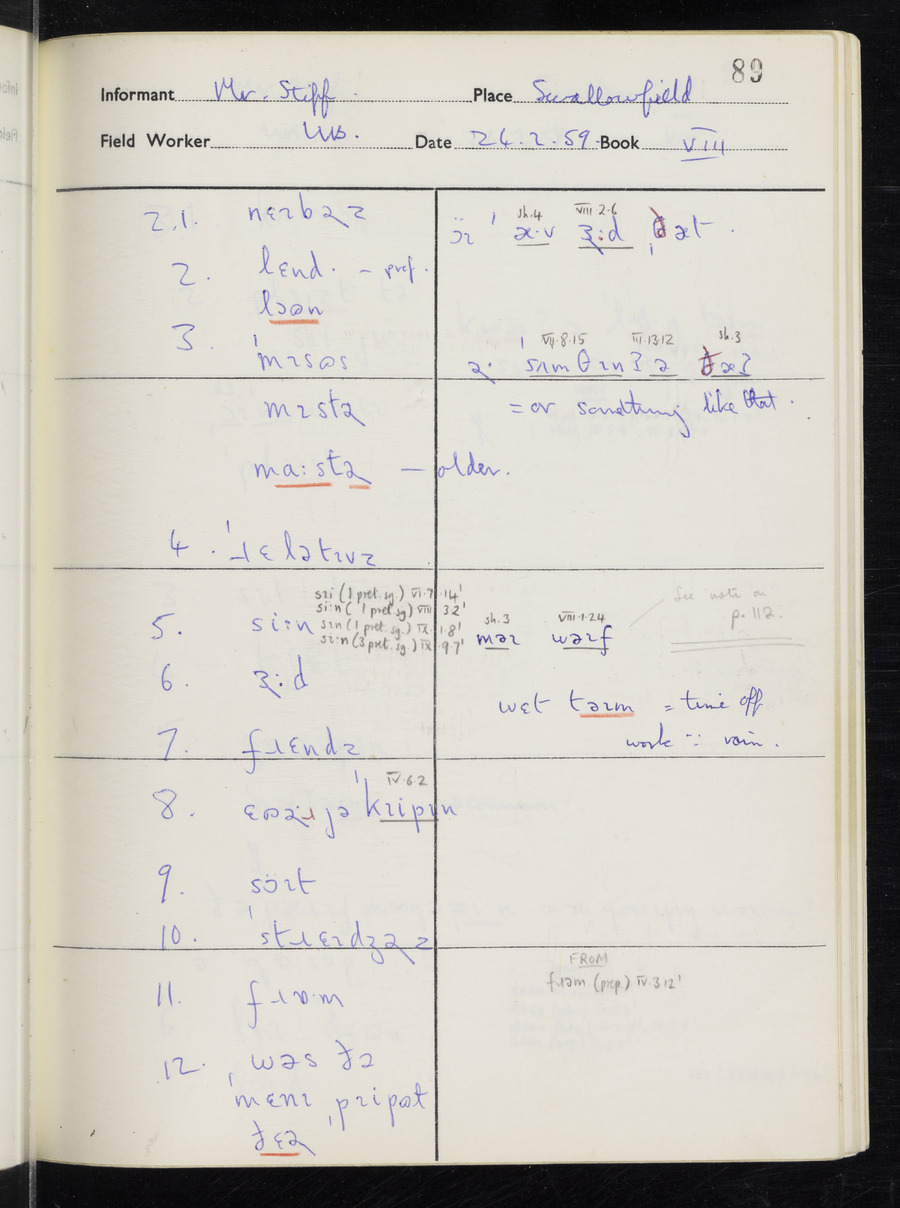 89
Informant Mr. Stiff. Place Swallowfield
Field Worker WB. Date 26.2.59 Book VIII
2.1. nɛɪbəz
2. lɛnd. – pref.
lɔən
3. ˈmɪsəs
mɪstə
ma:stə – older.
4. ˈɹɛlətɪvz
5. si:n
sɪi (1 pret. sg.) VI.7.14'
si:n (1 pret. sg) VIII 3.2'
sɪn (1 pret. sg.) IX.1.8'
sɪ:n (3 pret. sg.) IX.9.7'
6. ɜ:d
7. fɹɛndz
8. IV.6.2
kɪipɪn
9. sɔ̈ɪt
10. ˈstɹɛɪdʒəz
11. fɹɒm
12. ˌwəs ðə
mɛnɪ ˌpɪipət
ðɛə
sh.4 VIII 2.6
ɜ:d
VII.8.15 III.13.12 sh.3
= or something like that.
sh.3 VIII.1.24
məɪ wəɪf
See note on
p. 112.
wɛt təɪm = time off
work ∵ rain.
FROM
fɹəm (prep.) IV.3.12'